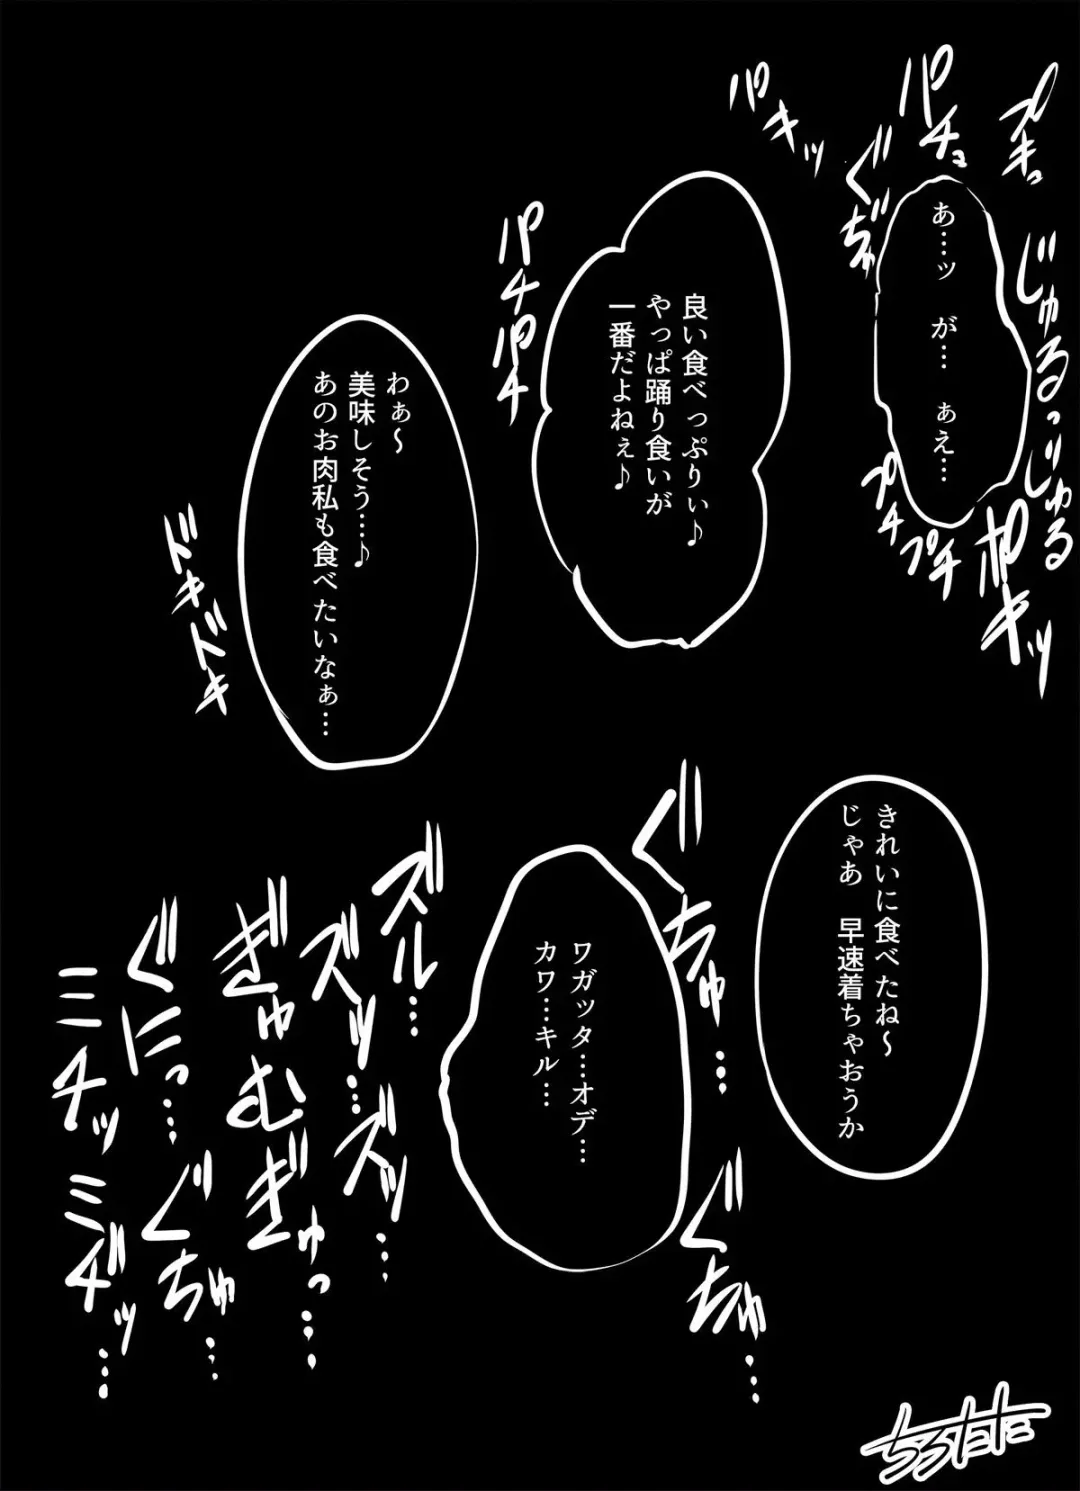 プキュ
パチュ
じゅるっ
じゅる
あ…ッ　が…　ぁえ…
ぐぢゅ
パキッ
プチ
プチ
ポキッ
良い食べっぷりぃ♪
やっぱ踊り食いが
一番だよねぇ♪
パチパチ
わぁ～
美味しそう…♪
あのお肉私も食べたいなぁ…
ドキドキ
きれいに食べたね～
じゃあ　早速着ちゃおうか
ぐちゅ…
ぐちゅ…
ワガッタ…オデ…
カワ…キル…
ズル…
ズッ…
ズッ…
ぎゅむ
ぎゅっ…
ぐにっ…
ぐちゅ…
ミチッ
ミヂッ…
ちろたた